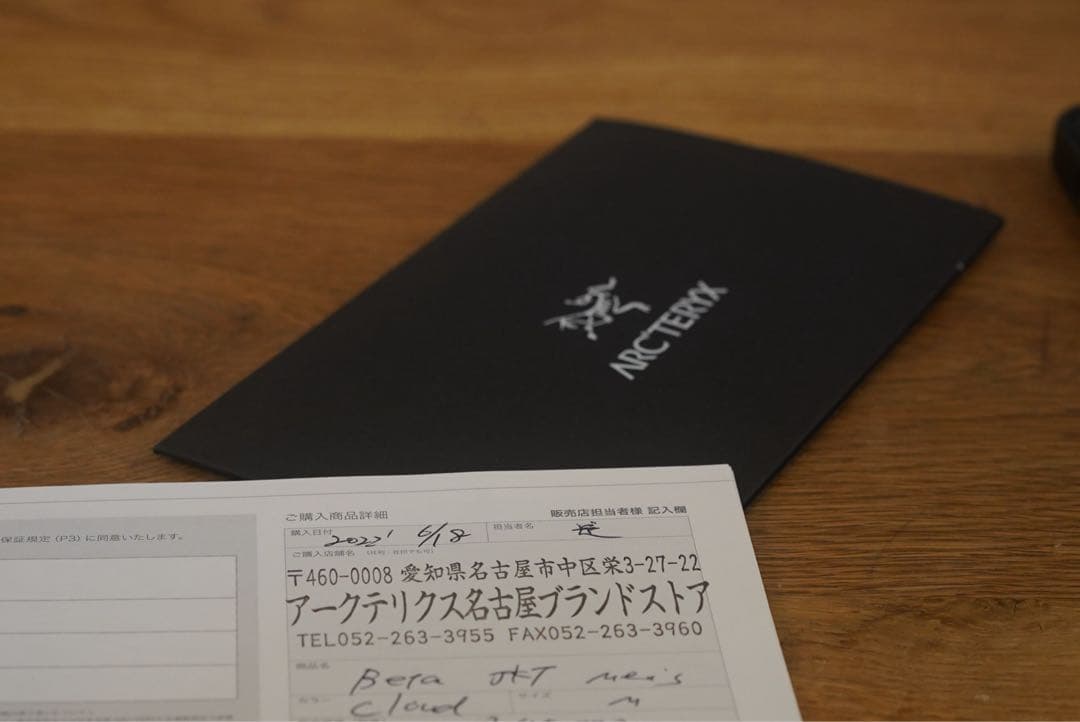 ARC'TERYX
ご購入商品詳細 販売店担当者様 記入欄
保証規定 (P3) に同意いたします。
購入日付 2022' 6/18 担当者名
ご購入店舗名
〒460-0008 愛知県名古屋市中区栄3-27-22
アークテリクス名古屋ブランドストア
TEL052-263-3955 FAX052-263-3960
商品名 Beta JKT Men's
カラー Cloud サイズ M